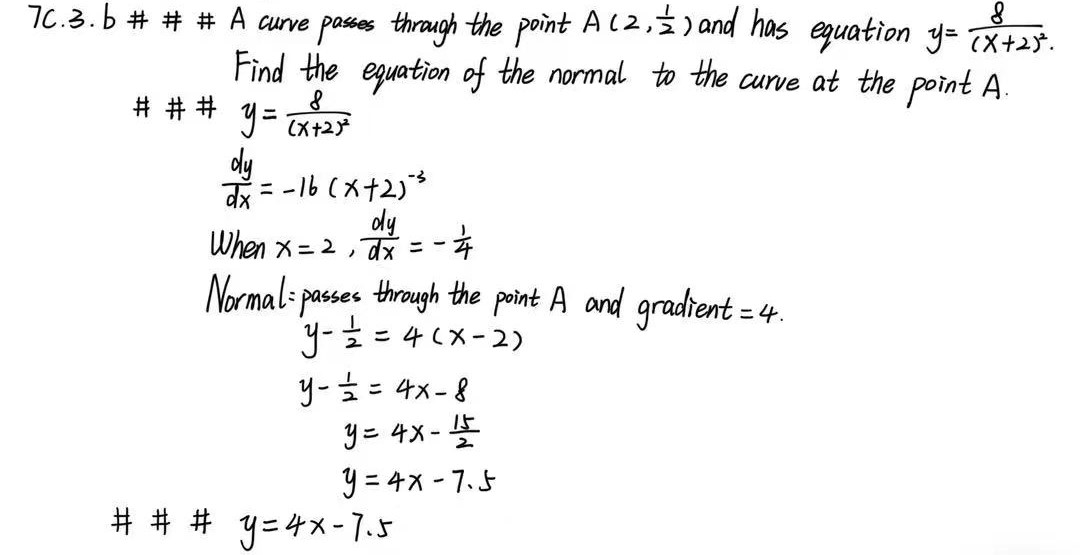 7C.3.b # # # A curve passes through the point A(2,1/2) and has equation y=8/(x+2)².
Find the equation of the normal to the curve at the point A.
# # # y=8/(x+2)²
dy/dx=-16(x+2)⁻³
When x=2, dy/dx=-1/4
Normal: passes through the point A and gradient=4.
y-1/2=4(x-2)
y-1/2=4x-8
y=4x-15/2
y=4x-7.5
# # # y=4x-7.5